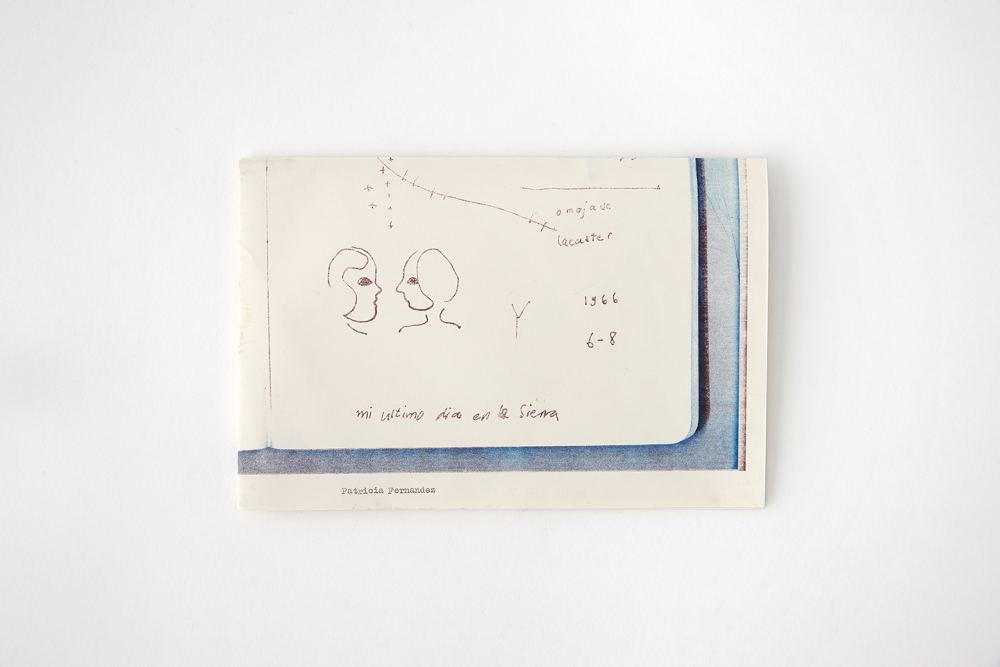 omojave
lacaster
Y
1966
6-8
mi ultimo dia en la Sierra
Patricia Fernandez